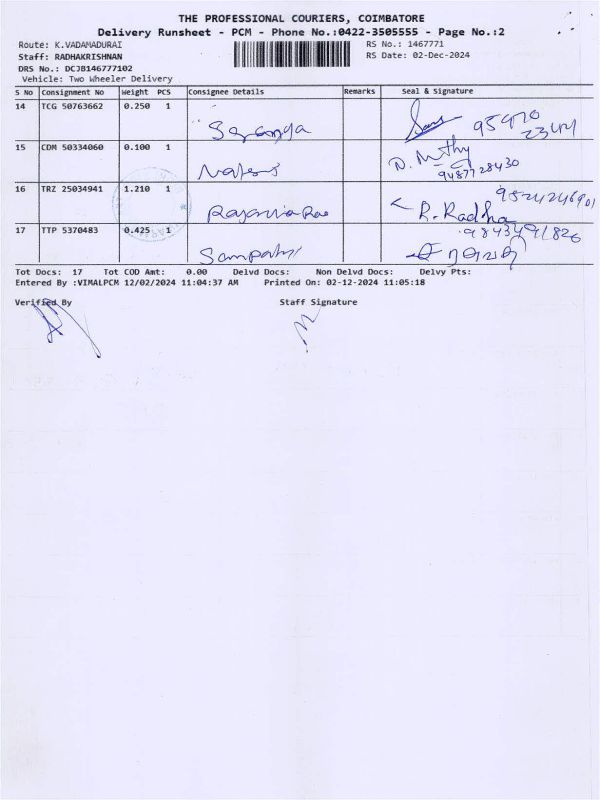 THE PROFESSIONAL COURIERS, COIMBATORE
Delivery Runsheet - PCM - Phone No.:0422-3505555 - Page No.:2
Route: K.VADAMADURAI RS No.: 1467771
Staff: RADHAKRISHNAN RS Date: 02-Dec-2024
DRS No.: DCJB146777102
Vehicle: Two Wheeler Delivery
S No Consignment No Weight PCS Consignee Details Remarks Seal & Signature
14 TCG 50763662 0.250 1
15 CDM 50334060 0.100 1
9487728430
16 TRZ 25034941 1.210 1
R. Radha
17 TTP 5370483 0.425 1 9843491826
Sampathi
Tot Docs: 17 Tot COD Amt: 0.00 Delvd Docs: Non Delvd Docs: Delvy Pts:
Entered By :VIMALPCM 12/02/2024 11:04:37 AM Printed On: 02-12-2024 11:05:18
Verified By Staff Signature